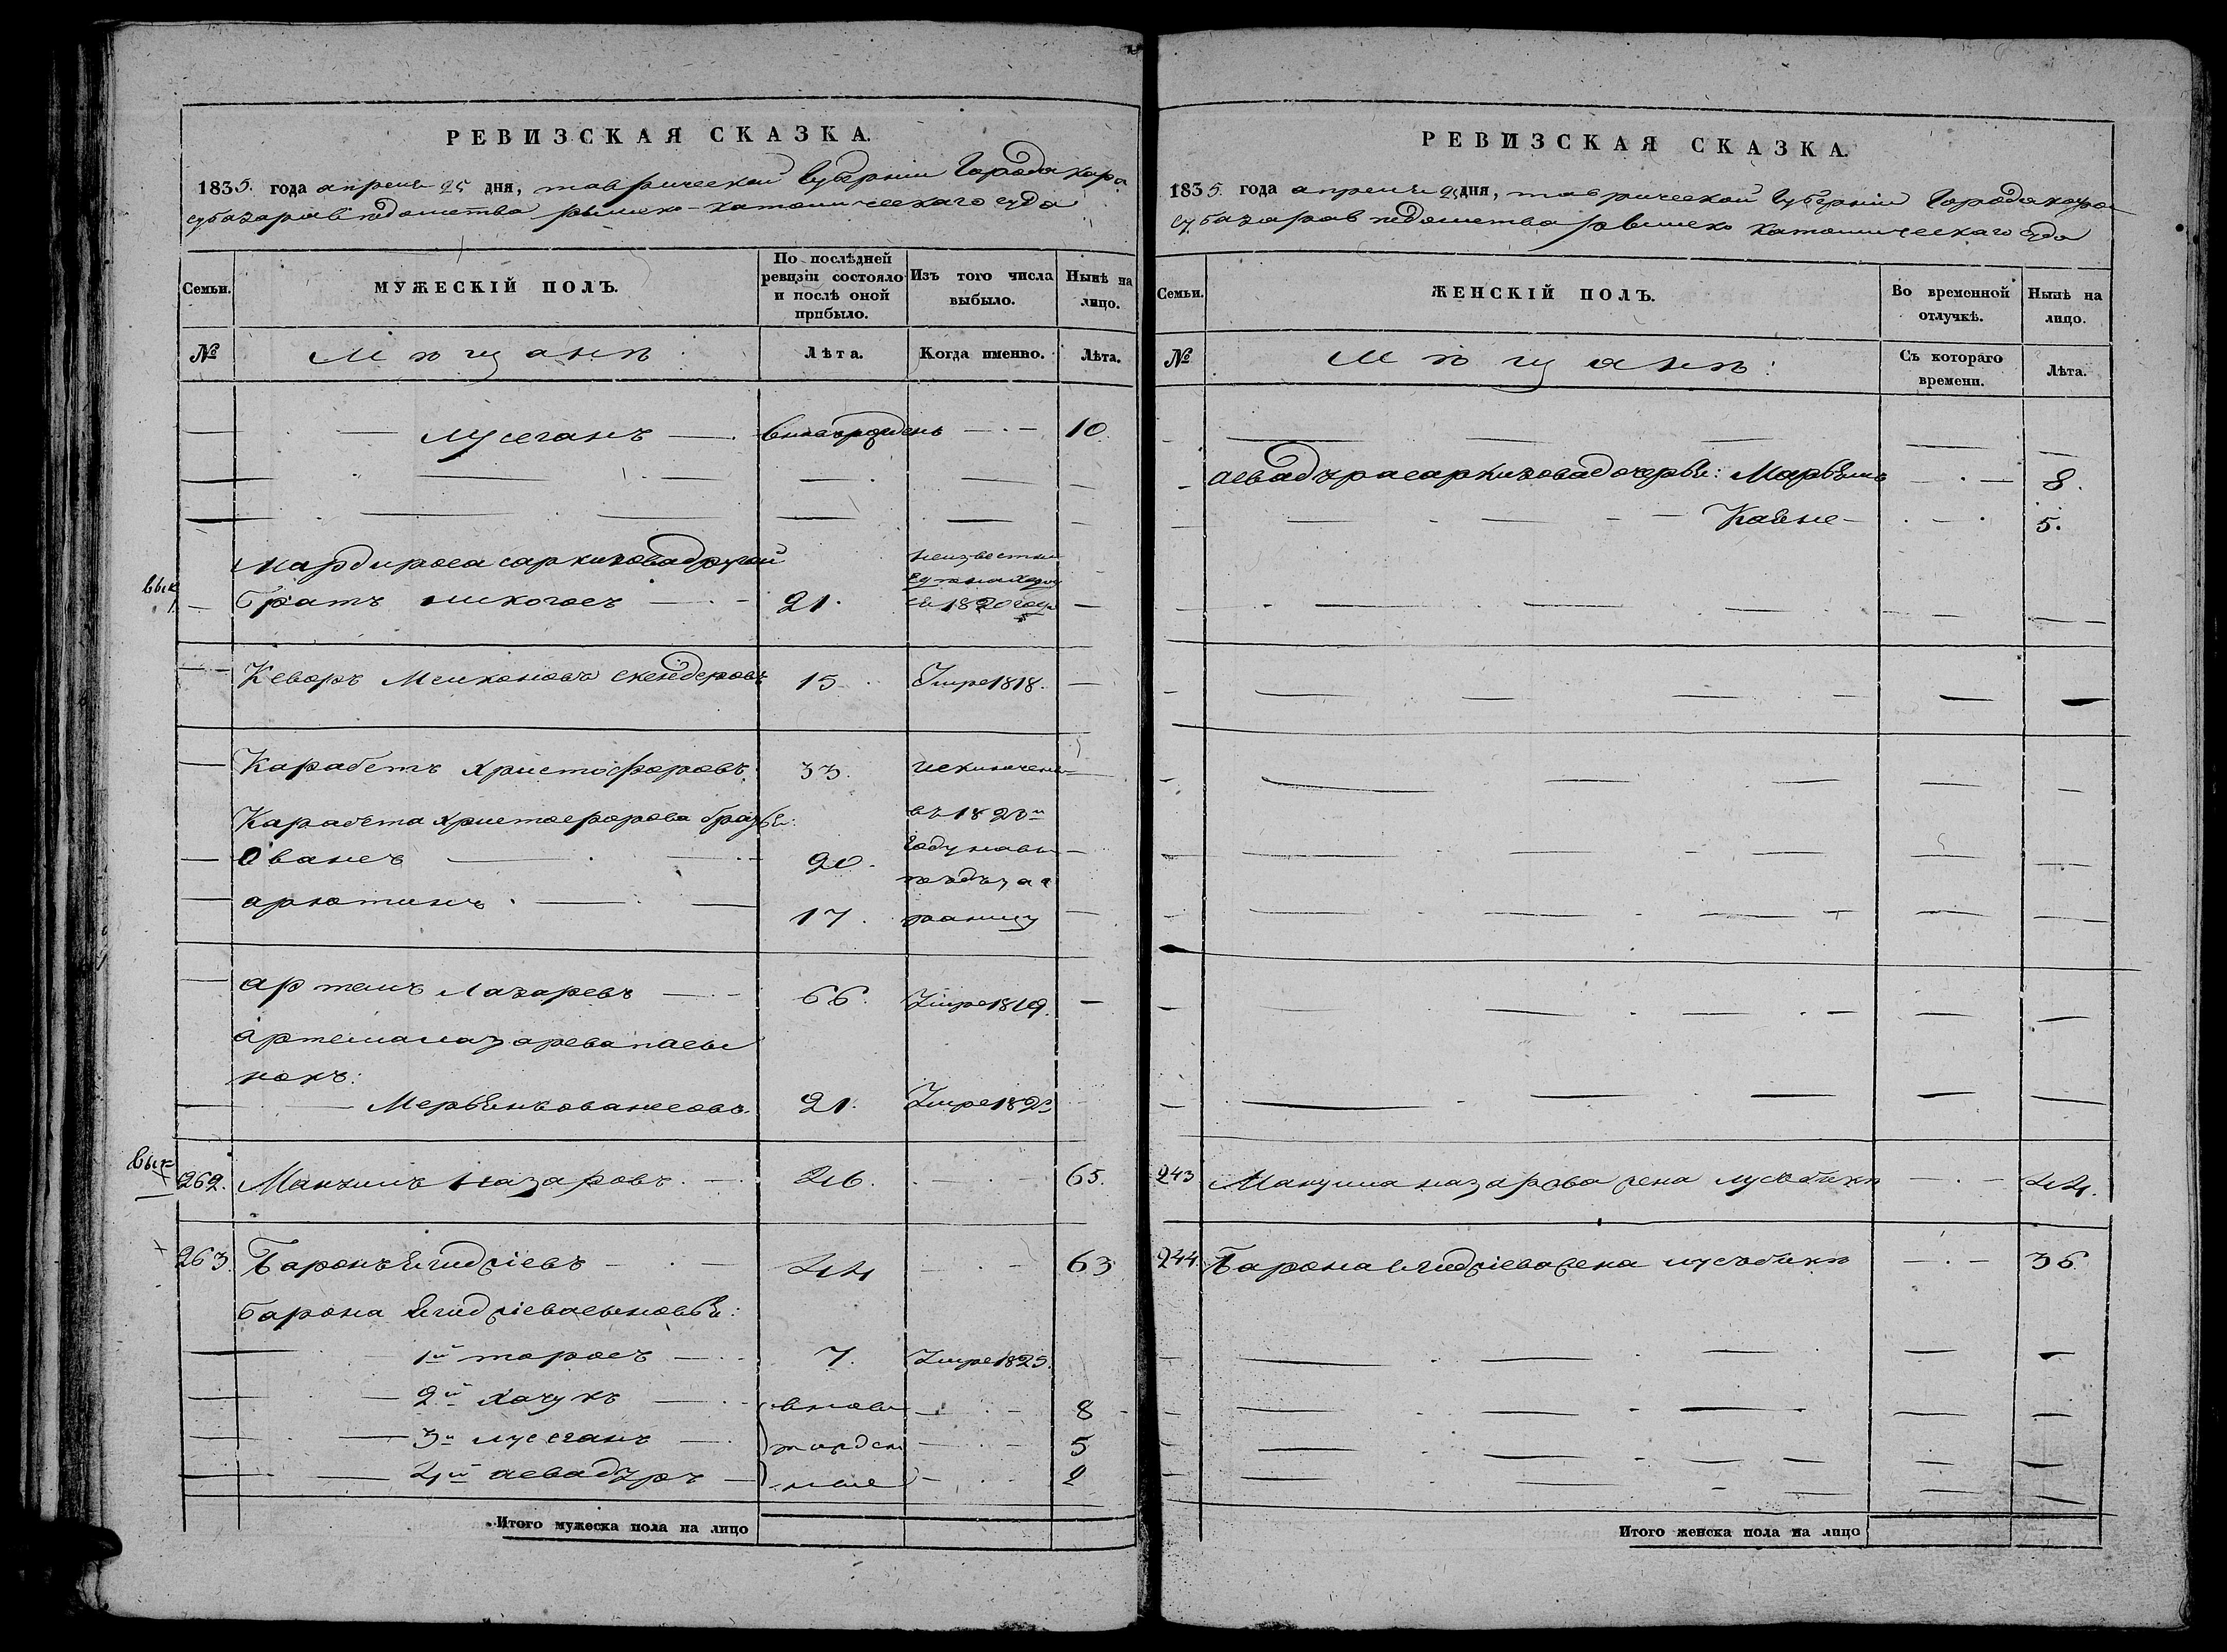 РЕВИЗСКАЯ СКАЗКА.
1835. года апреля 25 дня, таврической Губернии Города Кара
субазара ведомства римско-католическаго суда
Семьи.
МУЖЕСКІЙ ПОЛЪ.
По послѣдней ревизіи состояло и послѣ оной прибыло.
Изъ того числа выбыло.
Нынѣ на лицо.
№
Мѣщанѣ
Лѣта.
Когда именно.
Лѣта.
мусеганъ вновьрожденъ 10
Мардироса саркизова другой неизвестно
вык
братъ никогосъ 21. съ 1820 года
Кеворъ Мелконовъ скендеровъ 15 Умре 1818.
Карабетъ христофоровъ 33. исключены
Карабета христофорова братья: въ 1823м
Ованесъ 20. году
арютинъ 17. границу
артемъ лазаревъ 66. Умре 1819.
артема лазарева пасы
нокъ:
21. Умре 182
вык
262. Манукъ назаровъ 46. 65.
263. Баронъ 44 63
барона сыновья:
1й торосъ 7. Умре 1825.
2й хачукъ вновь 8
3й мусеганъ рожден 5
4й асвадуръ ные 2
Итого мужеска пола на лицо
РЕВИЗСКАЯ СКАЗКА.
1835. года апреля 25 дня, таврической Губернии Города Кара
субазара ведомства римско католическаго суда
Семьи.
ЖЕНСКІЙ ПОЛЪ.
Во временной отлучкѣ.
Нынѣ на лицо.
№
Мѣщанѣ:
Съ котораго времени.
Лѣта.
асвадура саркизова дочерьи: Марьямъ 8.
Каяне 5.
243 назарова жена 44.
244. Барона жена 36
Итого женска пола на лицо